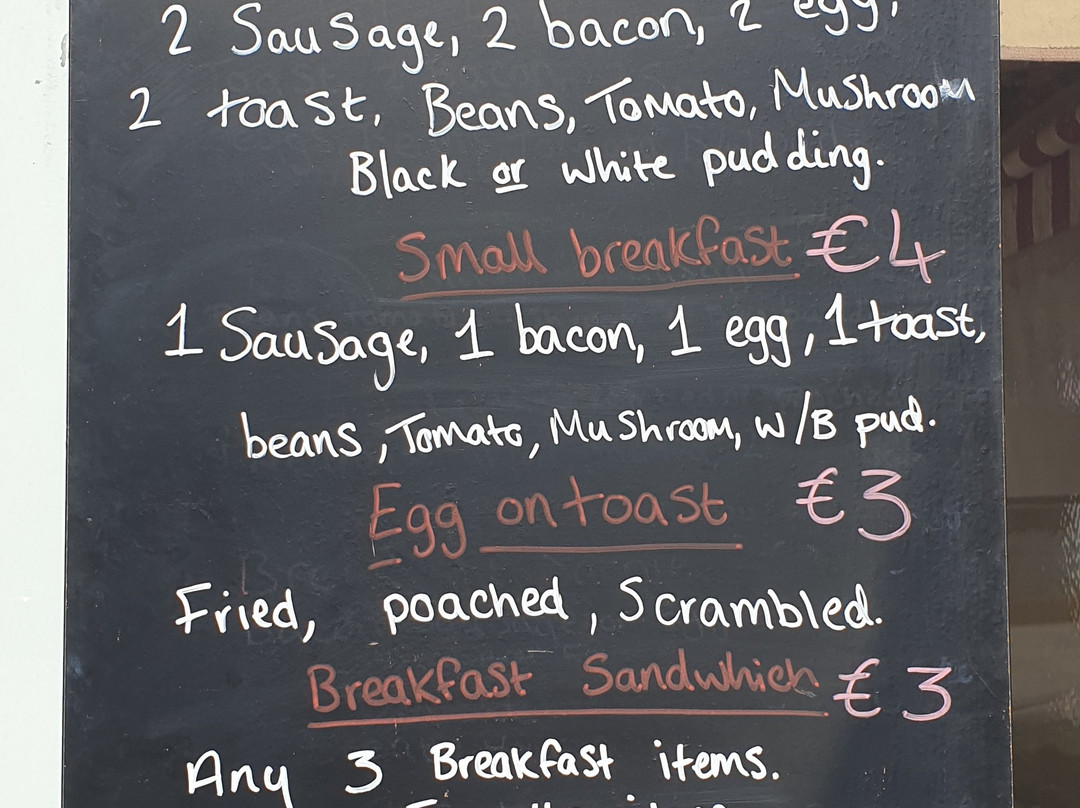 2 Sausage, 2 bacon, 2 egg,
2 toast, Beans, Tomato, Mushroom
Black or white pudding.
Small breakfast €4
1 Sausage, 1 bacon, 1 egg, 1 toast,
beans, Tomato, Mushroom, W/B pud.
Egg on toast €3
Fried, poached, Scrambled.
Breakfast Sandwhich €3
Any 3 Breakfast items.